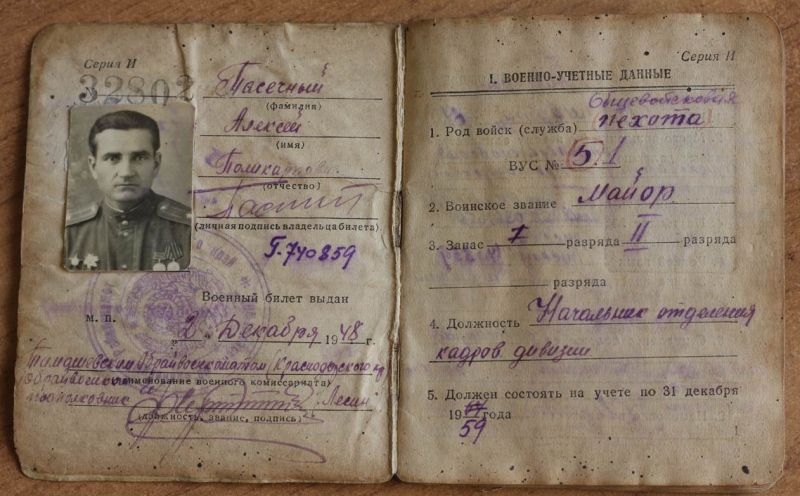 Серия И
32802
Пасечный
(фамилия)
Алексей
(имя)
Поликарпович
(отчество)
(личная подпись владельца билета)
Г-740859
Военный билет выдан
М. П.
„2" Декабря 1948 г.
Тимашевским Райвоенкоматом (Краснодарского кр
(наименование военного комиссариата)
подполковник Лесин
(должность, звание, подпись)
Серия И
I. ВОЕННО-УЧЕТНЫЕ ДАННЫЕ
Общевойсковая
1. Род войск (служба) пехота
ВУС № 51
2. Воинское звание Майор
3. Запас I разряда II разряда
разряда
4. Должность Начальник отделения
кадров дивизии
5. Должен состоять на учете по 31 декабря
19 года
59
1